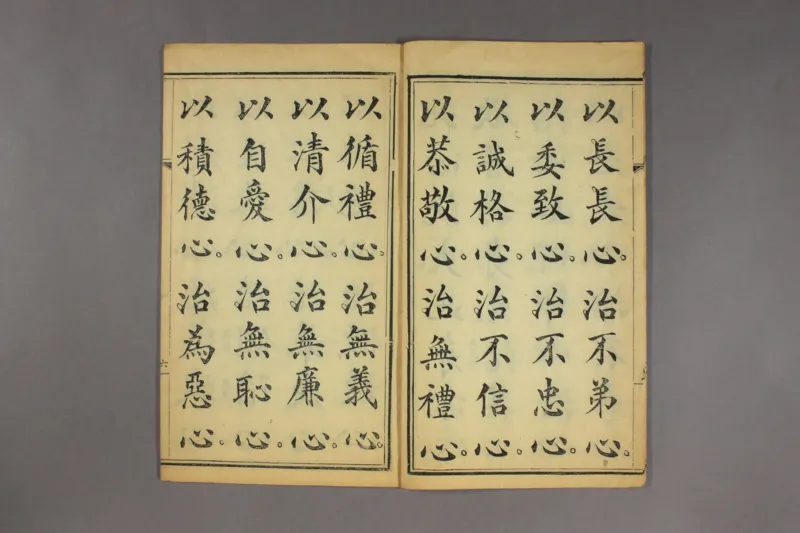 以長長心。治不弟心。
以委致心。治不忠心。
以誠格心。治不信心。
以恭敬心。治無禮心。
以循禮心。治無義心。
以清介心。治無廉心。
以自愛心。治無恥心。
以積德心。治為惡心。
六